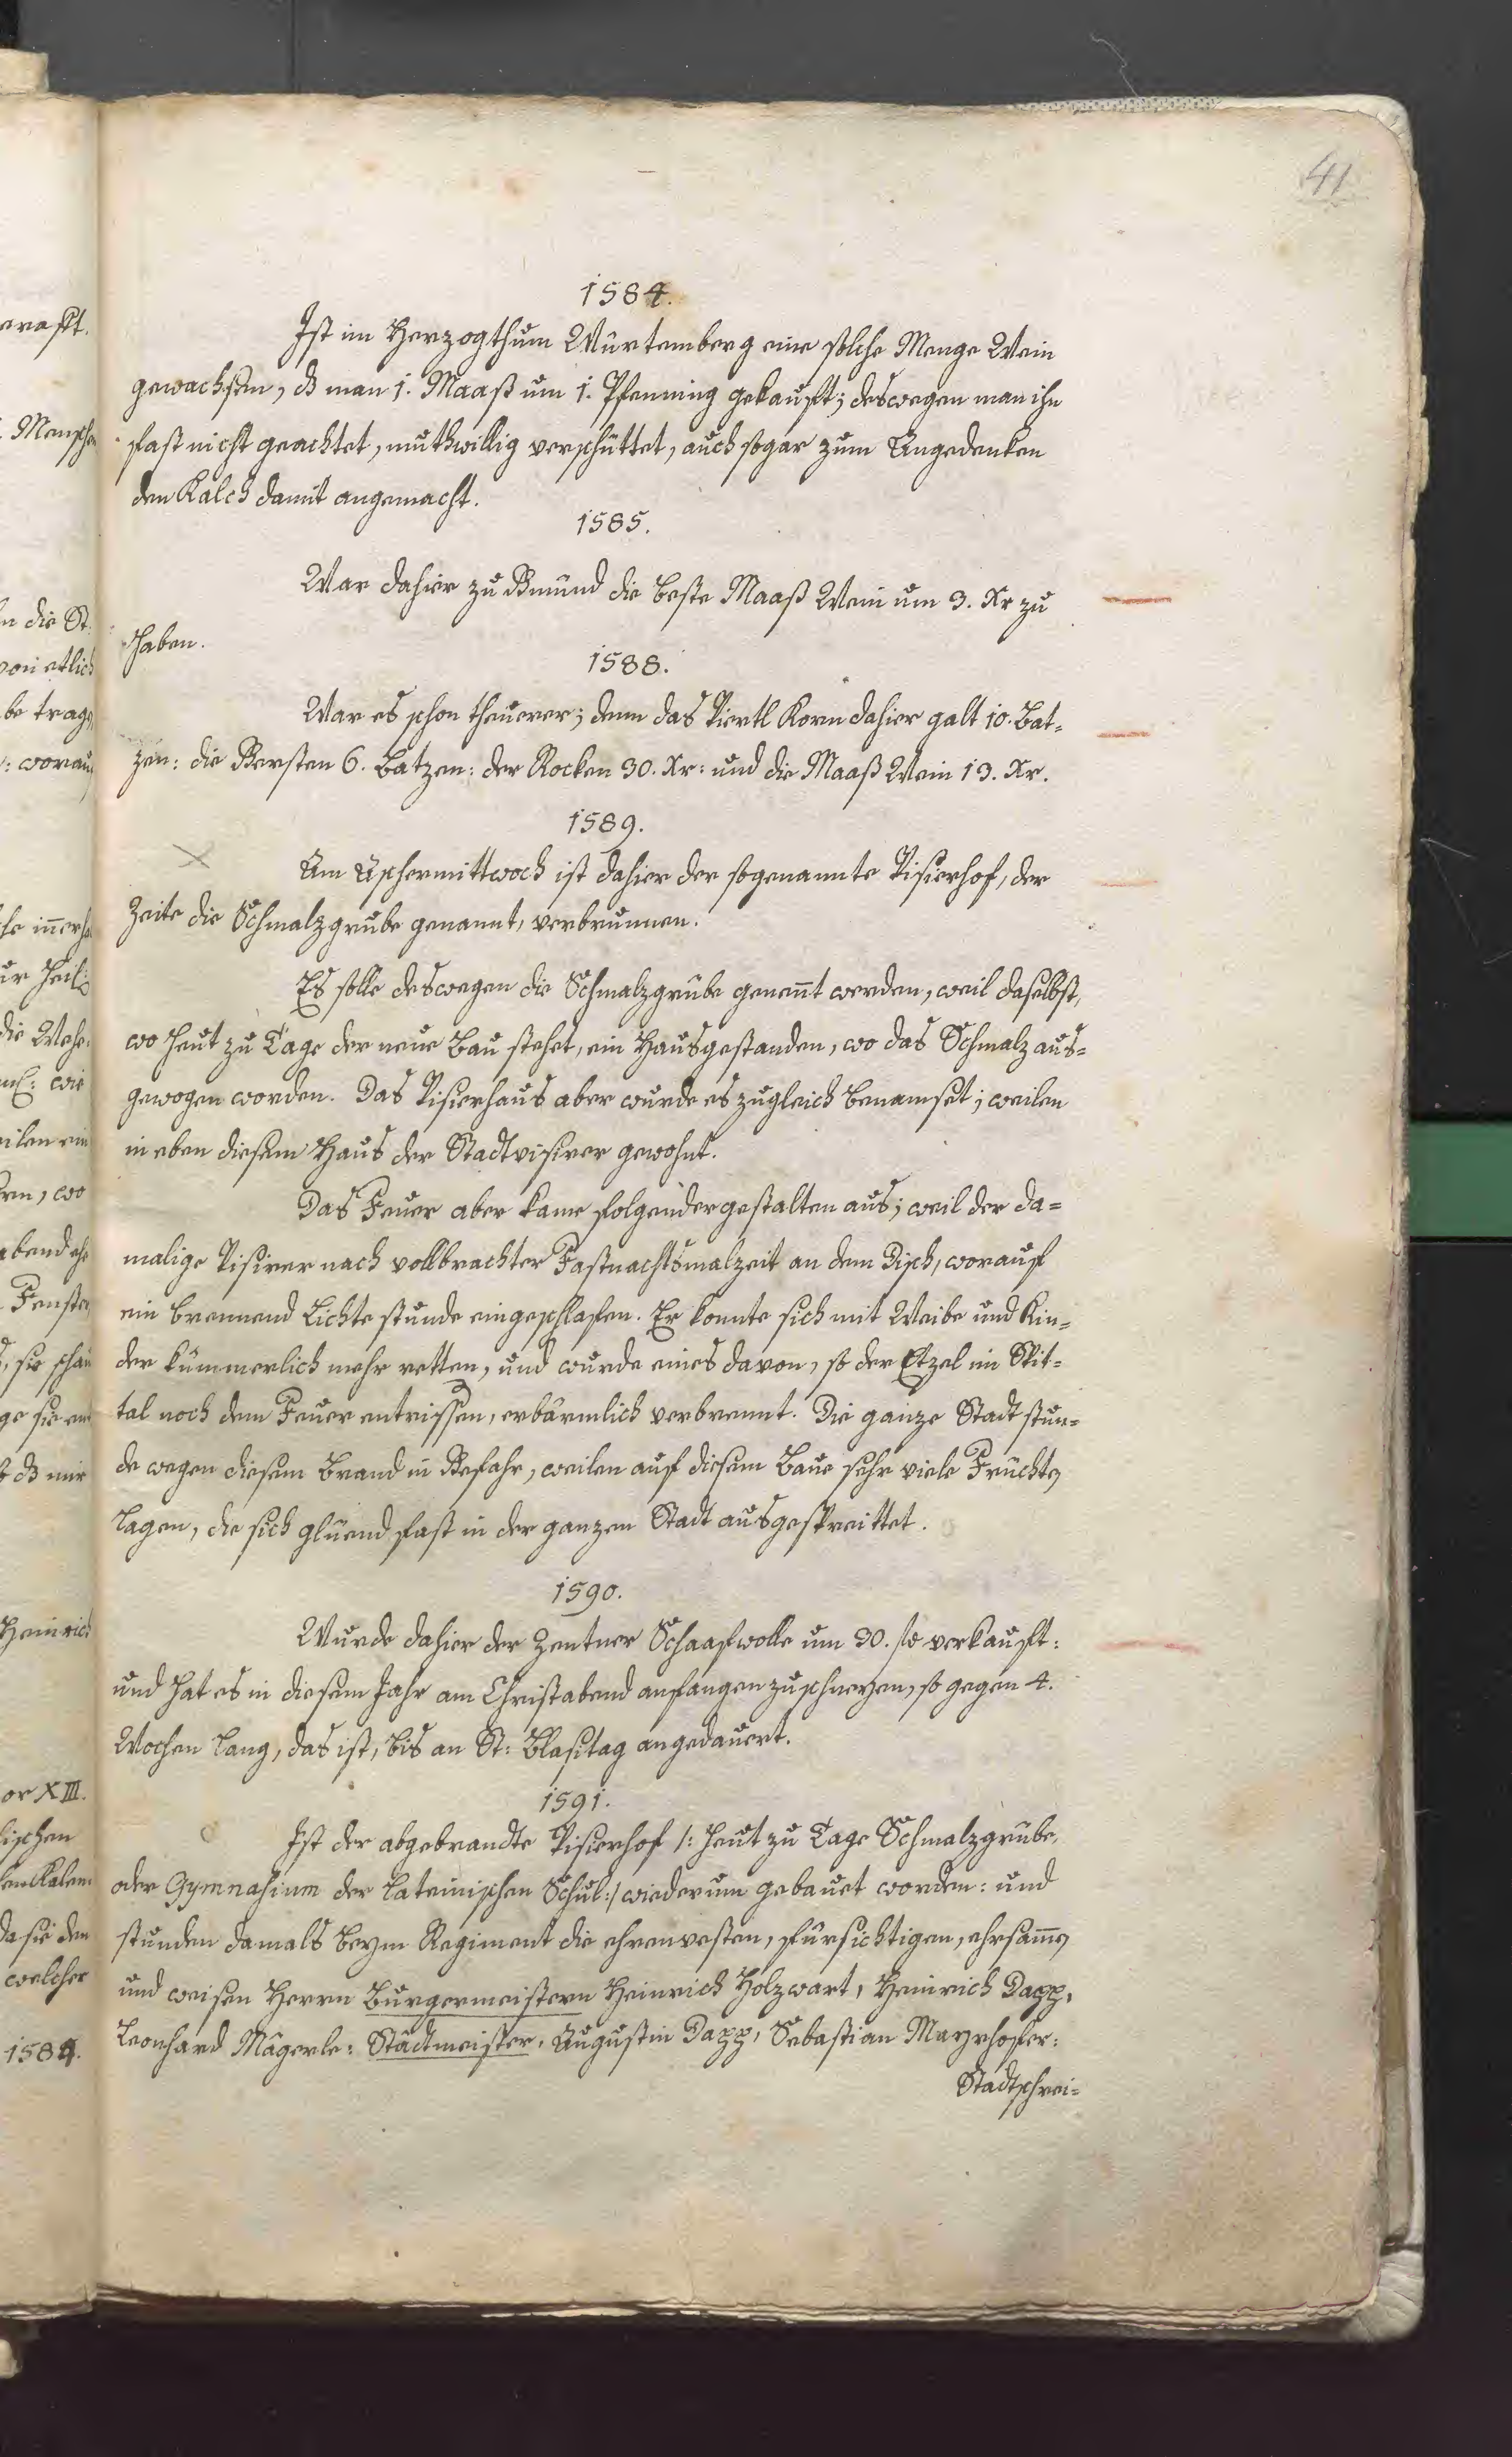 41
1584.
Ist im Herzogthum Würtemberg eine solche Menge Wein
gewachsen, dz man 1. Maaß um 1. Pfenning gekauft; deswegen man ihn
fast nicht geachtet, muthwillig verschüttet, auch sogar zum Angedenken
den Kalch damit angemacht.
1585.
War dahier zu Gmünd die beste Maaß Wein um 3. Xr zu
haben.
1588.
War es schon theurer; denn das Viertl Korn dahier galt 10. Bat=
zen: die Gersten 6. Batzen: der Rocken 30. Xr: und die Maaß Wein 13. Xr.
1589.
Am Aschermittwoch ist dahier der sogenannte Visierhof, der
Zeite die Schmalzgrube genannt, verbrunnen.
Es solle deswegen die Schmalzgrube genennt werden, weil daselbst,
wo heut zu Tage der neue Bau stehet, ein Haus gestanden, wo das Schmalz aus=
gewogen worden. Das Visierhaus aber wurde es zugleich benamset; weilen
in eben diesem Haus der Stadtvisirer gewohnt.
Das Feuer aber kame folgendergestalten aus; weil der da=
malige Visirer nach vollbrachter Fastnachtsmalzeit an dem Disch, worauf
ein brennend Lichte stunde eingeschlafen. Er konnte sich mit Weibe und Kin=
der kümmerlich mehr retten, und wurde eines davon, so der Etzel im Spit=
tal noch dem Feuer entrissen, erbärmlich verbrennt. Die ganze Stadt stun=
de wegen diesem Brand in Gefahr, weilen auf diesem Baue sehr viele Früchte
lagen, die sich glüend fast in der ganzen Stadt ausgespreittet.
1590.
Wurde dahier der Zentner Schaafwolle um 30. fl verkauft:
und hat es in diesem Jahr am Christabend anfangen zuschneyen, so gegen 4.
Wochen lang, das ist, bis an St: Blasitag angedauert.
1591.
Ist der abgebrandte Visierhof /: heut zu Tage Schmalzgrube,
oder Gymnasium der Lateinischen Schul:/ wiederum gebauet worden: und
stunden damals beym Regiment die ehrenvesten, fürsichtigen, ehrsamen
und weisen Herrn Burgermeistern Heinrich Holzwart, Heinrich Dapp,
Leonhard Mägerle: Städtmeister, Augustin Dapp, Sebastian Mayrhofer:
Stadtschrei=